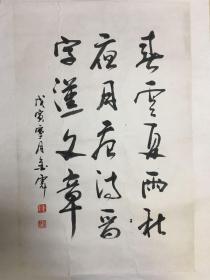 春雲夏雨秋
夜月唐詩晋
字漢文章
戊寅